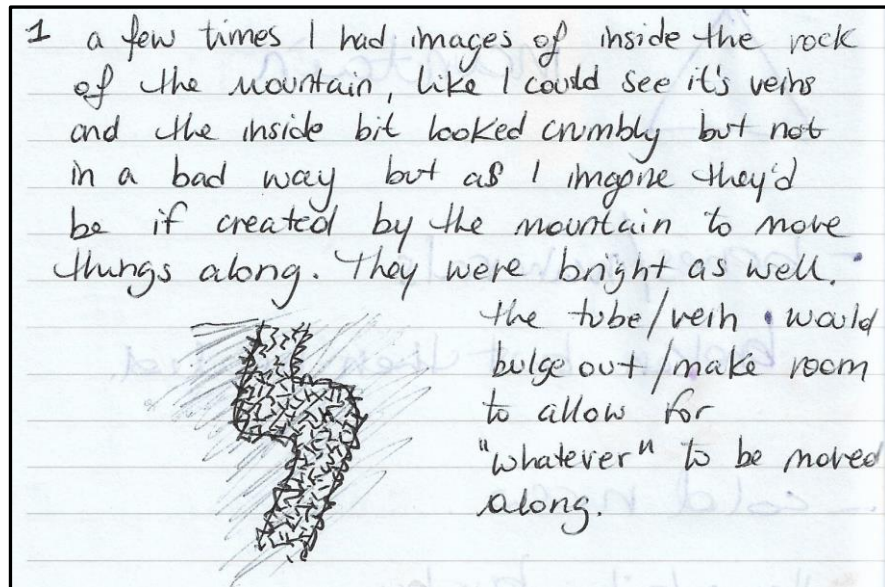 1 a few times I had images of inside the rock
of the mountain, like I could see it's veins
and the inside bit looked crumbly but not
in a bad way but as I imgone they'd
be if created by the mountain to move
things along. They were bright as well.
the tube/vein would
bulge out/make room
to allow for
"whatever" to be moved
along.